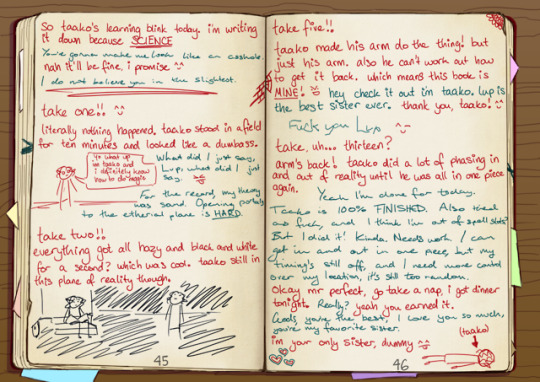 So taako's learning blink today. i'm writing
it down because SCIENCE
You're gonna make me look like an asshole.
nah it'll be fine. i promise ^^
I do not believe you in the slightest.
take one!!
literally nothing happened, taako stood in a field
for ten minutes and looked like a dumbass.
Yo what up
im taako and
i definitely know
how to do magic
What did I just say,
Lup. what did I just
say.
For the record, my theory
was sound. Opening portals
to the etherial plane is HARD.
take two!!
everything got all hazy and black and white
for a second? which was cool. taako still in
this plane of reality though.
45
take five!!
taako made his arm do the thing! but
just his arm. also he can't work out how
to get it back. which means this book is
MINE! hey check it out im taako. lup is
the best sister ever. thank you, taako! ^^
Fuck you Lup
take, uh... thirteen?
arm's back! taako did a lot of phasing in
and out of reality until he was all in one piece
again.
Yeah I'm done for today.
Taako is 100% FINISHED. Also tired
as fuck, and I think I'm out of spell slots?
But I did it! Kinda. Needs work. I can
get in and out in one piece, but my
timing's still off, and I need more control
over my location, it's still too random.
Okay mr perfect, go take a nap, i got dinner
tonight. Really? yeah you earned it.
Gods, you're the best, I love you so much,
you're my favorite sister.
i'm your only sister, dummy ^^
(taako)
46